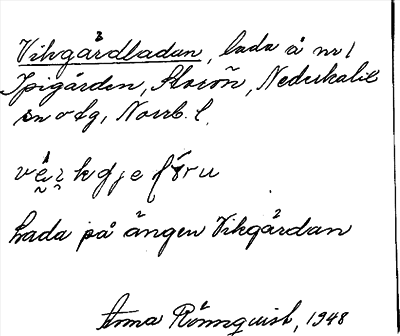 Vikgårdladan, lada å nr 1
Ipigården, Storön, Nederkalix
sn o tg, Norrb. l.
lada på ängen Vikgårdan
Anna Rönnquist, 1948